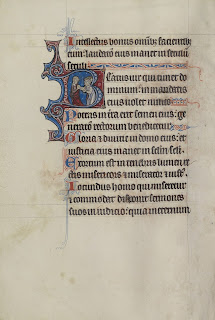 Intellectus bonus omnibus facientib;
eum: laudatio eius manet in seculũ
seculi.
Beatus uir qui timet do
minum: in mandatis
eius uolet nimis.
Potens in terra erit semen eius: ge
neratio rectorum benedicetur.
Gloria et diuitie in domo eius: et
iusticia eius manet in sclm scli.
Exortum est in tenebris lumen re
ctis misericors et miserator et iust'.
Iocundus homo qui miseretur
et commodat disponet sermones
suos in iudicio: quia in eternum